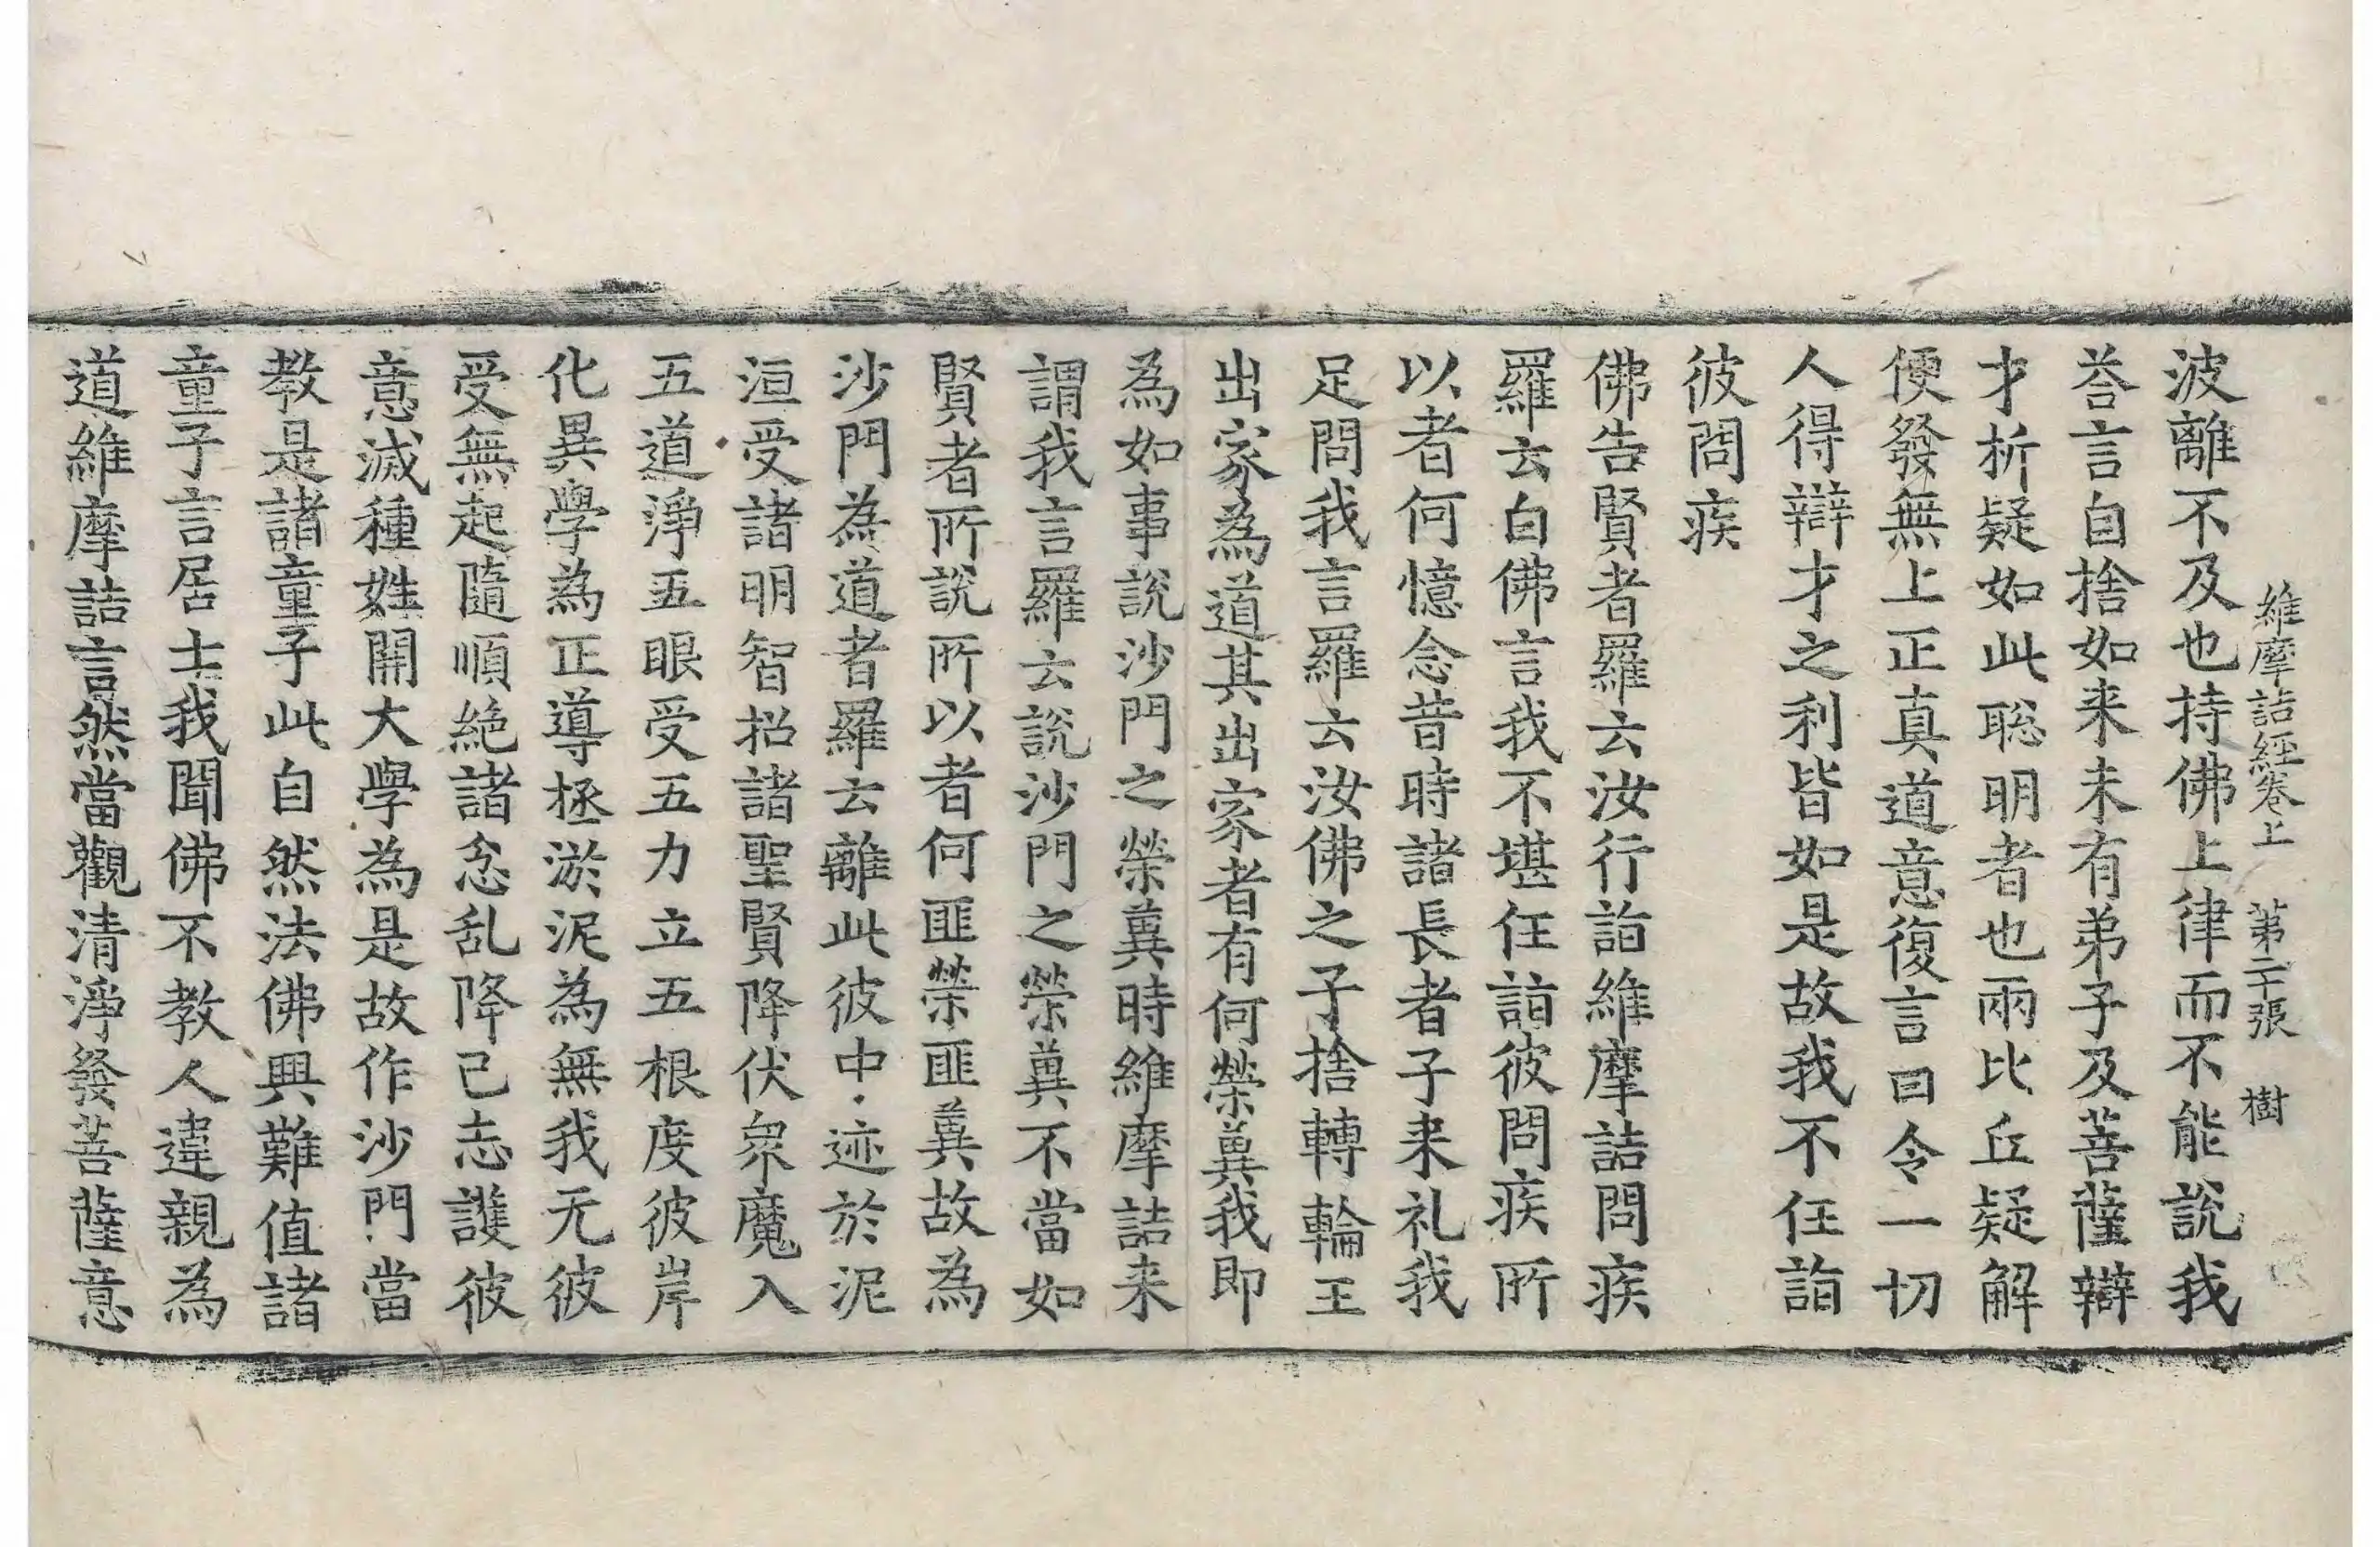 維摩詰經卷上 第二十張 樹
波離不及也持佛上律而不能說我
荅言自捨如来未有弟子及菩薩辯
才析疑如此聡明者也兩比丘疑解
便發無上正真道意復言曰令一切
人得辯才之利皆如是故我不任詣
彼問疾
佛告賢者羅云汝行詣維摩詰問疾
羅云白佛言我不堪任詣彼問疾所
以者何憶念昔時諸長者子来礼我
足問我言羅云汝佛之子捨轉輪王
出家為道其出家者有何榮兾我即
為如事說沙門之榮兾時維摩詰来
謂我言羅云說沙門之榮兾不當如
賢者所說所以者何匪榮匪兾故為
沙門為道者羅云離此彼中迹於泥
洹受諸明智招諸聖賢降伏衆魔入
五道淨五眼受五力立五根度彼岸
化異學為正導拯淤泥為無我无彼
受無起隨順絶諸忩乱降己志護彼
意滅種姓開大學為是故作沙門當
教是諸童子此自然法佛興難值諸
童子言居士我聞佛不教人違親為
道維摩詰言然當觀清淨發菩薩意